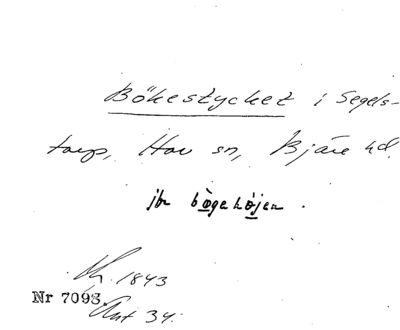 Bökestycket i Segels-
torp, Hov sn, Bjäre hd.
jfr bögehöjen.
1843
Nr 7093
Ant 34: